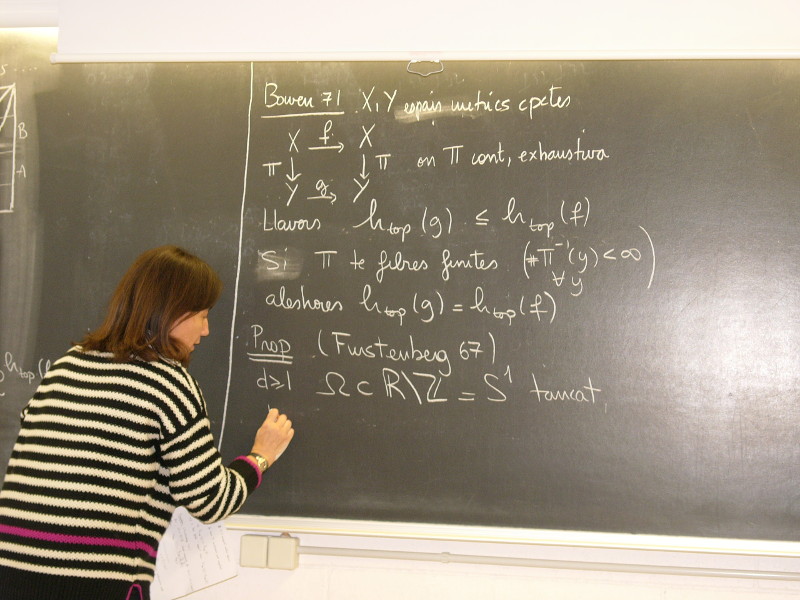 S
B
A
h_top(
Bowen 71 X, Y espais mètrics cpctes
X f→ X
π↓ ↓π on π cont, exhaustiva
Y g→ Y
Llavors h_top(g) ≤ h_top(f)
Si π te fibres finites (#π⁻¹(y) < ∞ ∀y)
aleshores h_top(g) = h_top(f)
Prop (Furstenberg 67)
d≥1 Ω ⊂ ℝ\ℤ = S¹ tancat,